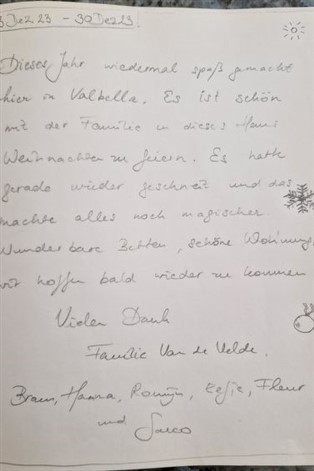 Dez 23 - 30 Dez 23
Dieses Jahr wiedermal spaß gemacht
hier in Valbella. Es ist schön
mit der Familie in dieses Haus
Weihnachten zu feiern. Es hatte
gerade wieder geschneit und das
machte alles noch magischer.
Wunderbare Betten, schöne Wohnung,
wir hoffen bald wieder zu kommen
Vielen Dank
Familie Van de Velde,
Bram, Hanna, Romijn, Fleur
und